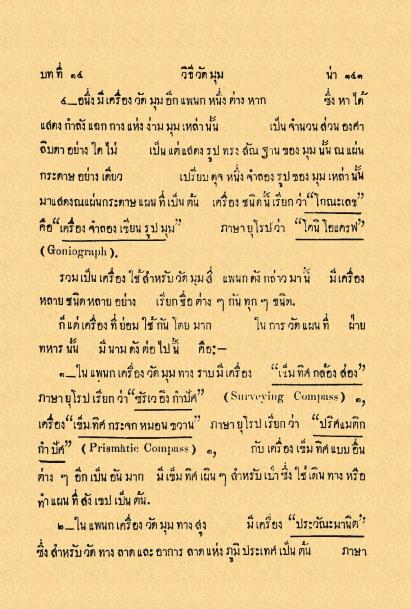 บทที่ ๑๔ วิธีวัดมุม น่า ๑๔๓
๔_อนึ่ง มีเครื่อง วัด มุม อีก แพนก หนึ่ง ต่าง หาก ซึ่ง หา ได้
แสดง กำลัง แฉก กาง แห่ง ง่าม มุม เหล่า นั้น เป็น จำนวน ส่วน องศา
ลิบดา อย่าง ใด ไม่ เป็น แต่ แสดง รูป ทรง สัณ ฐาน ของ มุม นั้น ณ แผ่น
กระดาษ อย่าง เดียว เปรียบ ดุจ หนึ่ง จำลอง รูป ของ มุม เหล่า นั้น
มาแสดง ณ แผ่น กระดาษ แผน ที่ เป็น ต้น เครื่อง ชนิด นี้ เรียก ว่า “โกณะเลข”
คือ “เครื่อง จำลอง เขียน รูป มุม” ภาษา ยุโรป ว่า “โคนิ โอแครฟ”
(Goniograph).
รวม เป็น เครื่อง ใช้ สำหรับ วัด มุม สี่ แพนก ดัง กล่าว มา นี้ มี เครื่อง
หลาย ชนิด หลาย อย่าง เรียก ชื่อ ต่าง ๆ กัน ทุก ๆ ชนิด.
ก็ แต่ เครื่อง ที่ ย่อม ใช้ กัน โดย มาก ใน การ วัด แผน ที่ ฝ่าย
ทหาร นั้น มี นาม ดัง ต่อ ไป นี้ คือ:—
๑_ใน แพนก เครื่อง วัด มุม ทาง ราบ มี เครื่อง “เข็ม ทิศ กล้อง ส่อง”
ภาษา ยุโรป เรียก ว่า “ซิรเว อิง กำปัศ” (Surveying Compass) ๑,
เครื่อง “เข็ม ทิศ กระจก หมอน ขวาน” ภาษา ยุโรป เรียก ว่า “ปริศแมติก
กำปัศ” (Prismatic Compass) ๑, กับ เครื่อง เข็ม ทิศ แบบ อื่น
ต่าง ๆ อีก เป็น อัน มาก มี เข็ม ทิศ เผิน ๆ สำหรับ เป๋า ซึ่ง ใช้ เดิน ทาง หรือ
ทำ แผน ที่ สัง เขป เป็น ต้น.
๒_ใน แพนก เครื่อง วัด มุม ทาง สูง มี เครื่อง “ประวัณะมานิต”
ซึ่ง สำหรับ วัด ทาง ลาด และ อาการ ลาด แห่ง ภูมิ ประเทศ เป็น ต้น ภาษา